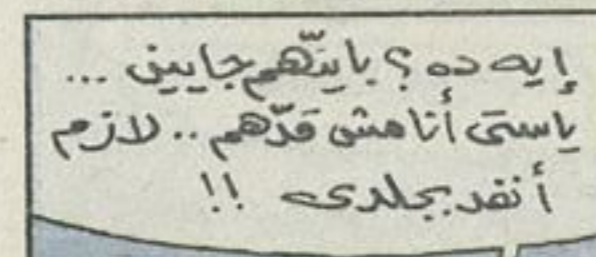 إيه ده ؟ باينّهم جايين ...
ياستى أنا مش قدّهم .. لازم
أنفد بجلدى !!